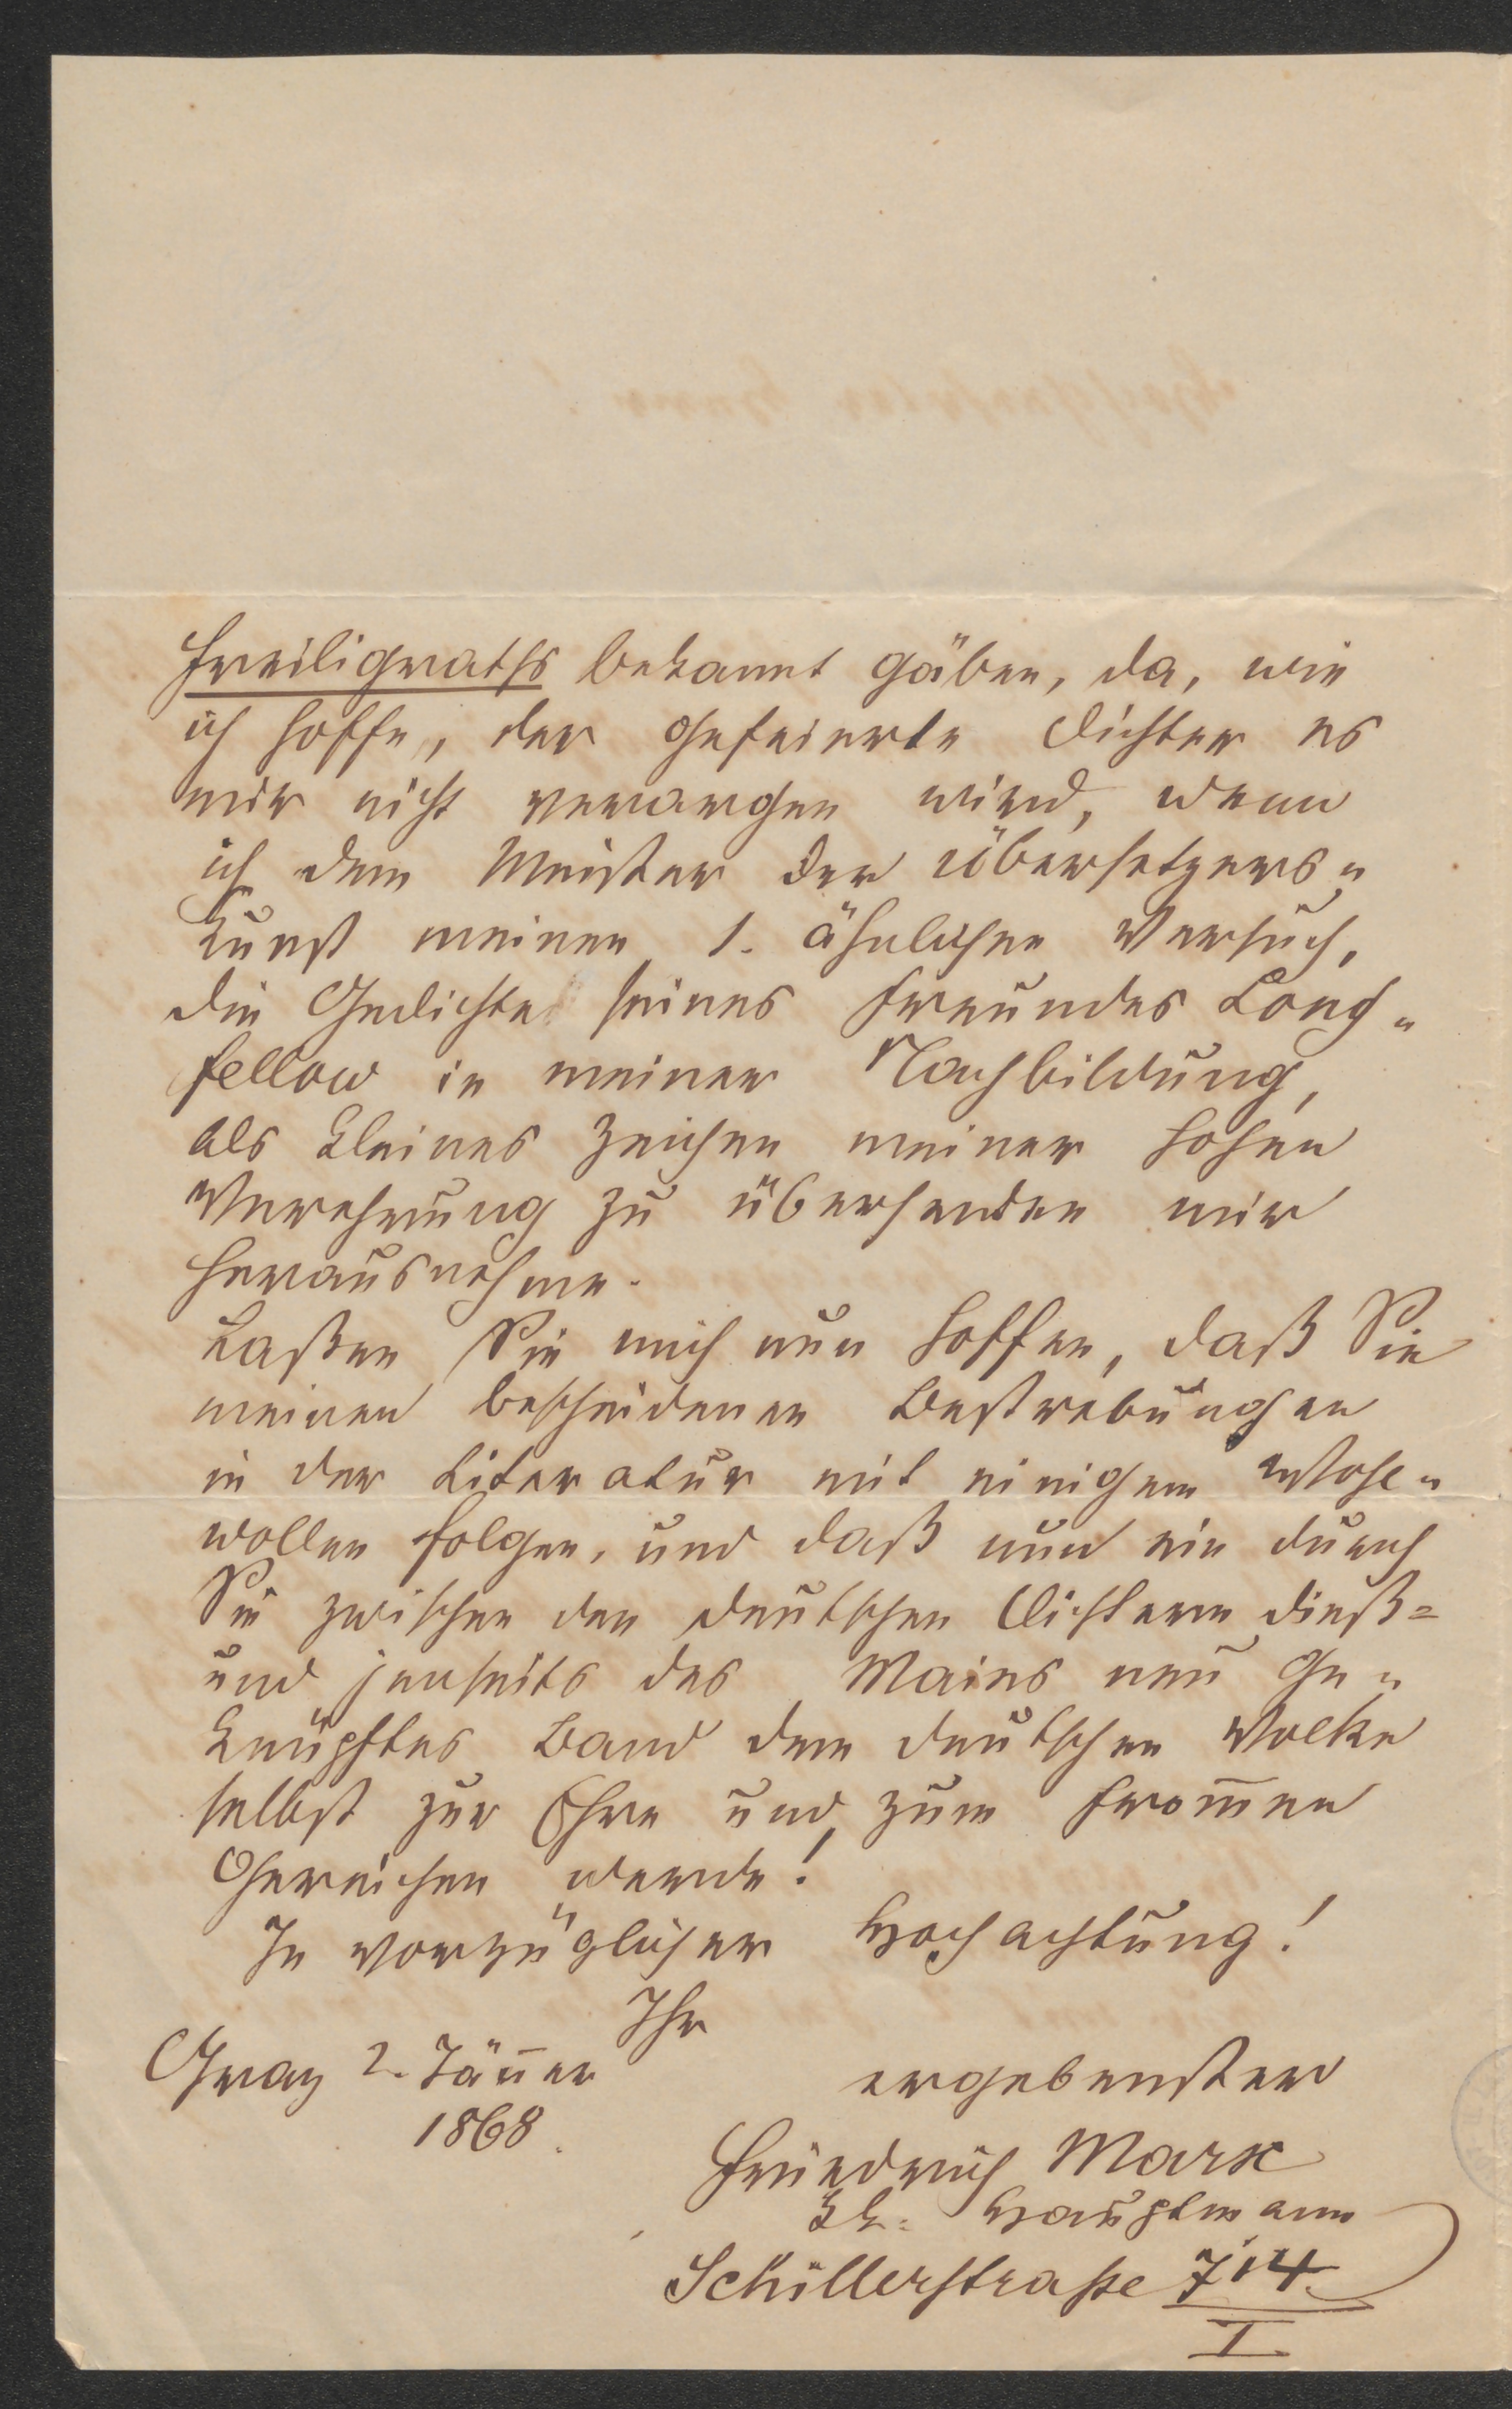 Freiligraths bekannt gäben, da, wie
ich hoffe, der gefeierte Dichter es
mir nicht verargen wird, wenn
ich dem Meister der Übersetzers„
kunst meinen 1. ähnlichen Versuch,
die Gedichte seines Freundes Long„
fellow in meiner Nachbildung,
als kleines Zeichen meiner hohen
Verehrung zu übersenden mir
herausnehme.
Laßen Sie mich nun hoffen, daß Sie
meinen bescheidenen Bestrebungen
in der Literatur mit einigem Wohl„
wollen folgen, und daß nun ein durch
Sie zwischen den deutschen Dichtern dieß=
und jenseits des Mains neu ge„
knüpftes Band dem deutschen Volke
selbst zur Ehre und zum Fromen
gereichen werde!
In vorzüglicher Hochachtung!
Ihr
Graz 2. Jäner
1868.
ergebenster
Friedrich Marx
kk. Hauptmann
Schillerstraße 714
I.